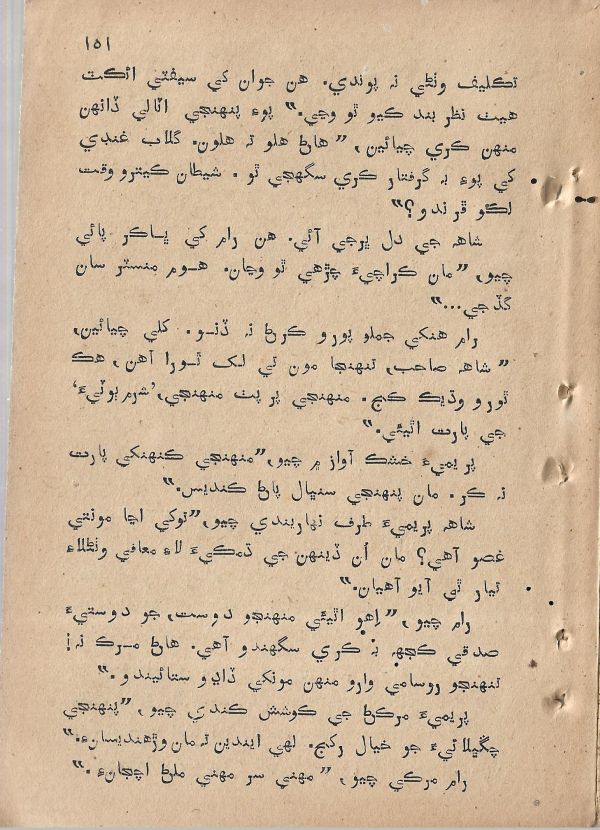 ١٥١
تڪليف وٺڻي نہ پوندي. هن جوان کي سيفٽي ائڪٽ
هيٺ نظر بند ڪيو ٿو وڃي.” پوءِ پنهنجي اٽالي ڏانهن
منهن ڪري چيائين، ”هاڻ هلو تہ هلون. گلاب غنڊي
کي پوءِ بہ گرفتار ڪري سگهجي ٿو. شيطان ڪيترو وقت
لڪو ڦرندو؟”
شاهہ جي دل ڀرجي آئي. هن رام کي ڀاڪر پائي
چيو، ”مان ڪراچيءَ چڙهي ٿو وڃان. هوم منسٽر سان
گڏجي...”
رام هنکي جملو پورو ڪرڻ نہ ڏنو. کلي چيائين،
”شاهہ صاحب، تنهنجا مون تي لک ٿورا آهن، هڪ
ٿورو وڌيڪ ڪج. منهنجي پر پٺ منهنجي، ’شرم بوٽيءَ‘
جي پارت اٿيئي.”
پريميءَ خشڪ آواز ۾ چيو، ”منهنجي ڪنهنکي پارت
نہ ڪر. مان پنهنجي سنڀال پاڻ ڪنديس.”
شاهہ پريميءَ طرف نهاريندي چيو، ”توکي اڃا مونتي
غصو آهي؟ مان اُن ڏينهن جي ڌمڪيءَ لاءِ معافي وٺڻلاءِ
تيار ٿي آيو آهيان.”
رام چيو، ”اِهو اٿيئي منهنجو دوست، جو دوستيءَ
صدقي ڪجهہ بہ ڪري سگهندو آهي. هاڻ مرڪ نہ!
تنهنجو روسامي وارو منهن مونکي ڏاڍو ستائيندو.”
پريميءَ مرڪڻ جي ڪوشش ڪندي چيو، ”پنهنجي
چڱڀلائيءَ جو خيال رکج. لهي ايندين تہ مان وڙهنديسانءِ.”
رام مرڪي چيو، ”مهني سر مهني ملڻ اچجانءِ.”